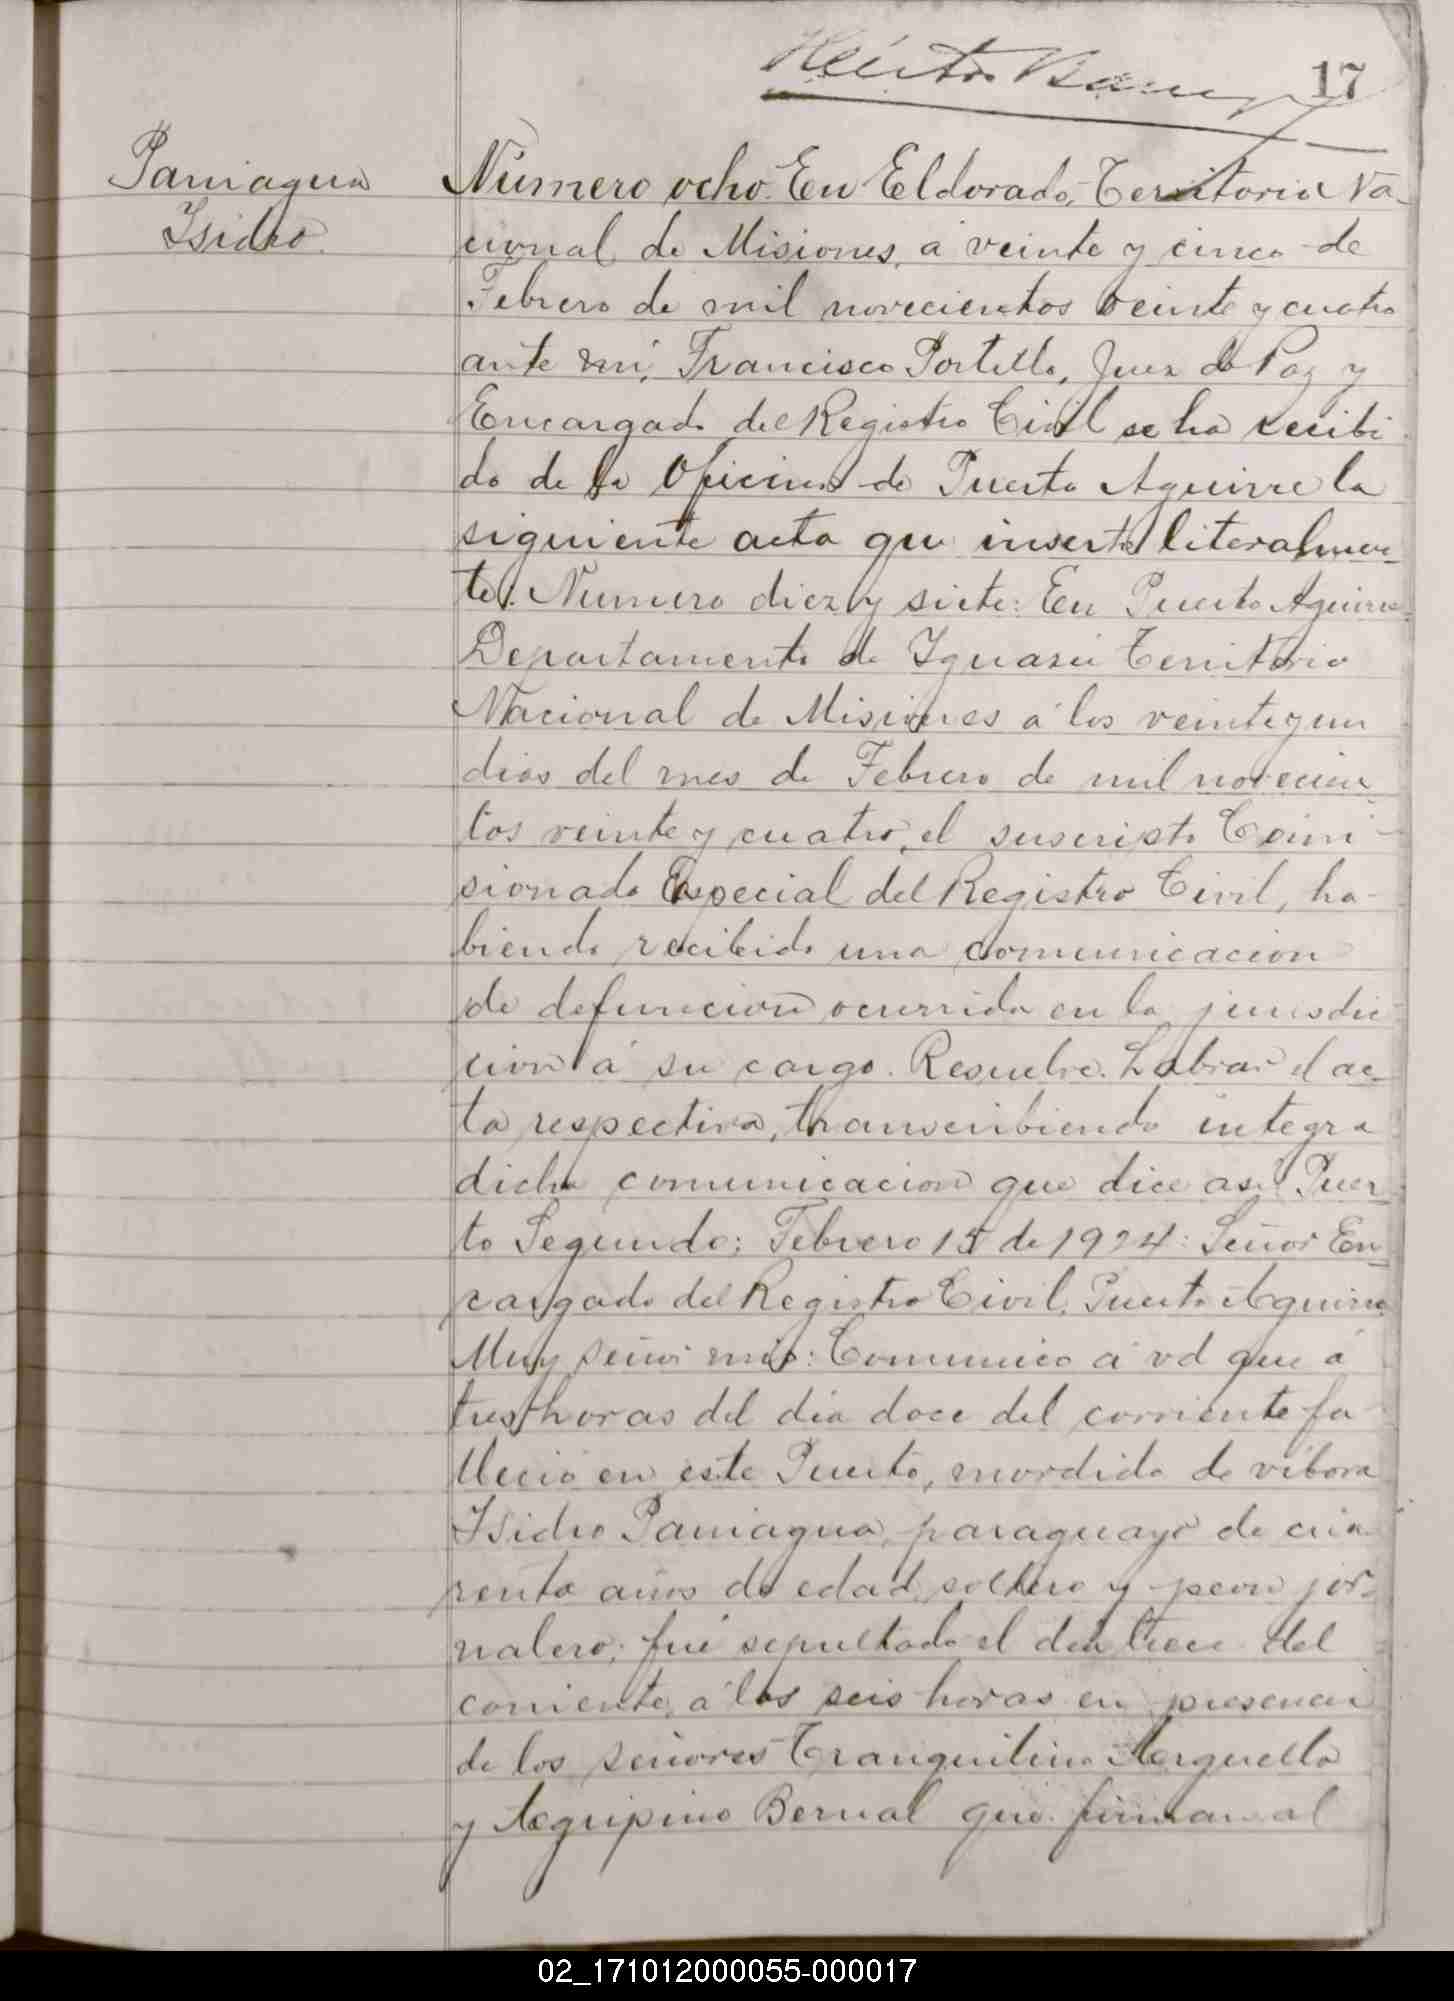 Héctor
17
Paniagua
Isidro.
Número ocho. En Eldorado, Territorio Na-
cional de Misiones, a veinte y cinco de
Febrero de mil novecientos veinte y cuatro
ante mí, Francisco Portillo, Juez de Paz y
Encargado del Registro Civil se ha recibi-
do de la Oficina de Puerto Aguirre la
siguiente acta que inserto literalmen-
te. Numero diez y siete: En Puerto Aguirre
Departamento de Iguasú Territorio
Nacional de Misiones a los veinte y un
dias del mes de Febrero de mil novecien
tos veinte y cuatro, el suscripto Comi-
sionado Especial del Registro Civil, ha-
biendo recibido una comunicacion
de defuncion ocurrida en la jurisdic-
cion á su cargo. Resuelve. Labrar el ac-
ta respectiva, transcribiendo integra
dicha comunicacion que dice asi: Puer-
to Segundo; Febrero 15 de 1924: Señor En-
cargado del Registro Civil, Puerto Aguirre
Muy señor mio: Comunico á vd que á
tres horas del dia doce del corriente fa
lleció en este Puerto, mordido de vibora
Isidro Paniagua, paraguayo de cua-
renta años de edad soltero y peon jor-
nalero; fué sepultado el dia trece del
corriente, a las seis horas en presencia
de los señores Tranquilino Arguello
y Agripino Bernal que firman al
02_171012000055-000017